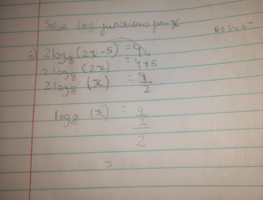 Solve log functions for x.
a) 2log₈(2x-5) = 9
2log₈(2x) = 4+5
2log₈(x) = 9/2
log₈(x) = 9/2/2
=